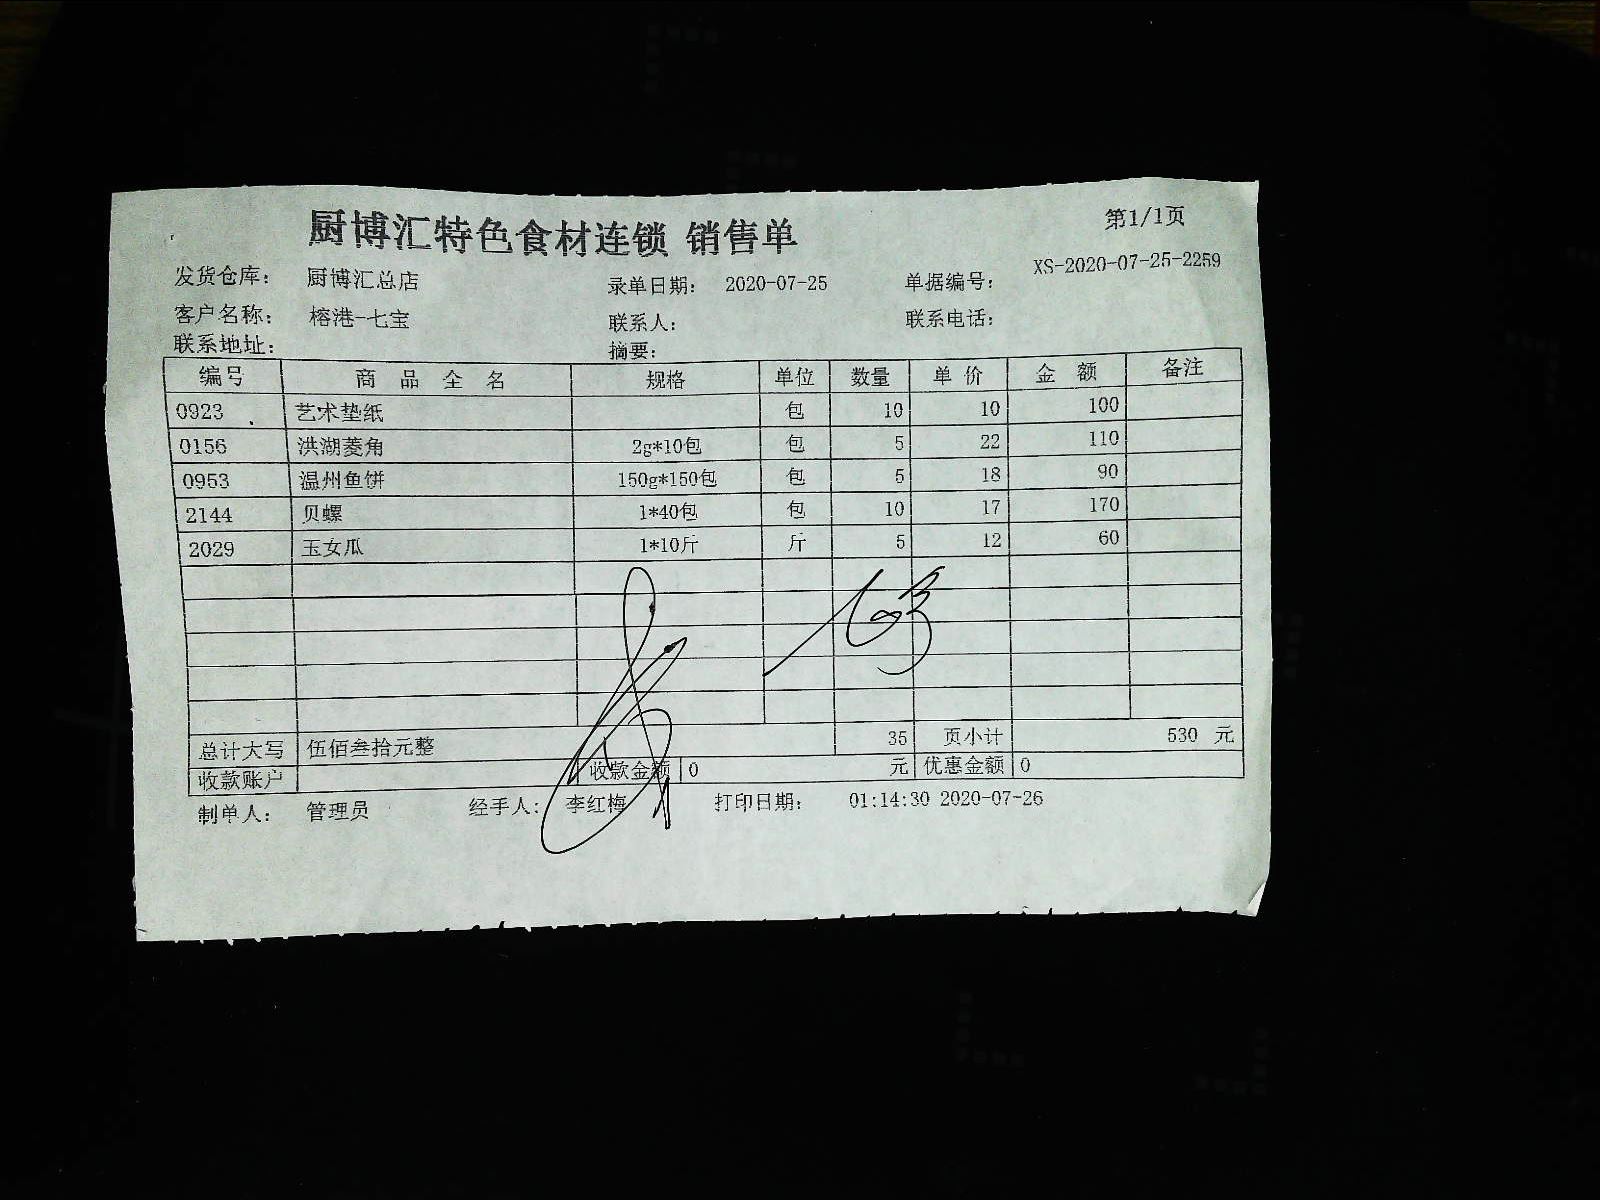 厨博汇特色食材连锁 销售单
第1/1页
发货仓库： 厨博汇总店 录单日期： 2020-07-25 单据编号： XS-2020-07-25-2259
客户名称： 榕港-七宝 联系人： 联系电话：
联系地址： 摘要：
编号 商品全名 规格 单位 数量 单价 金额 备注
0923 艺术垫纸 包 10 10 100
0156 洪湖菱角 2g*10包 包 5 22 110
0953 温州鱼饼 150g*150包 包 5 18 90
2144 贝螺 1*40包 包 10 17 170
2029 玉女瓜 1*10斤 斤 5 12 60
总计大写 伍佰叁拾元整 35 页小计 530 元
收款账户 收款金额 0 元 优惠金额 0
制单人： 管理员 经手人： 李红梅 打印日期： 01:14:30 2020-07-26